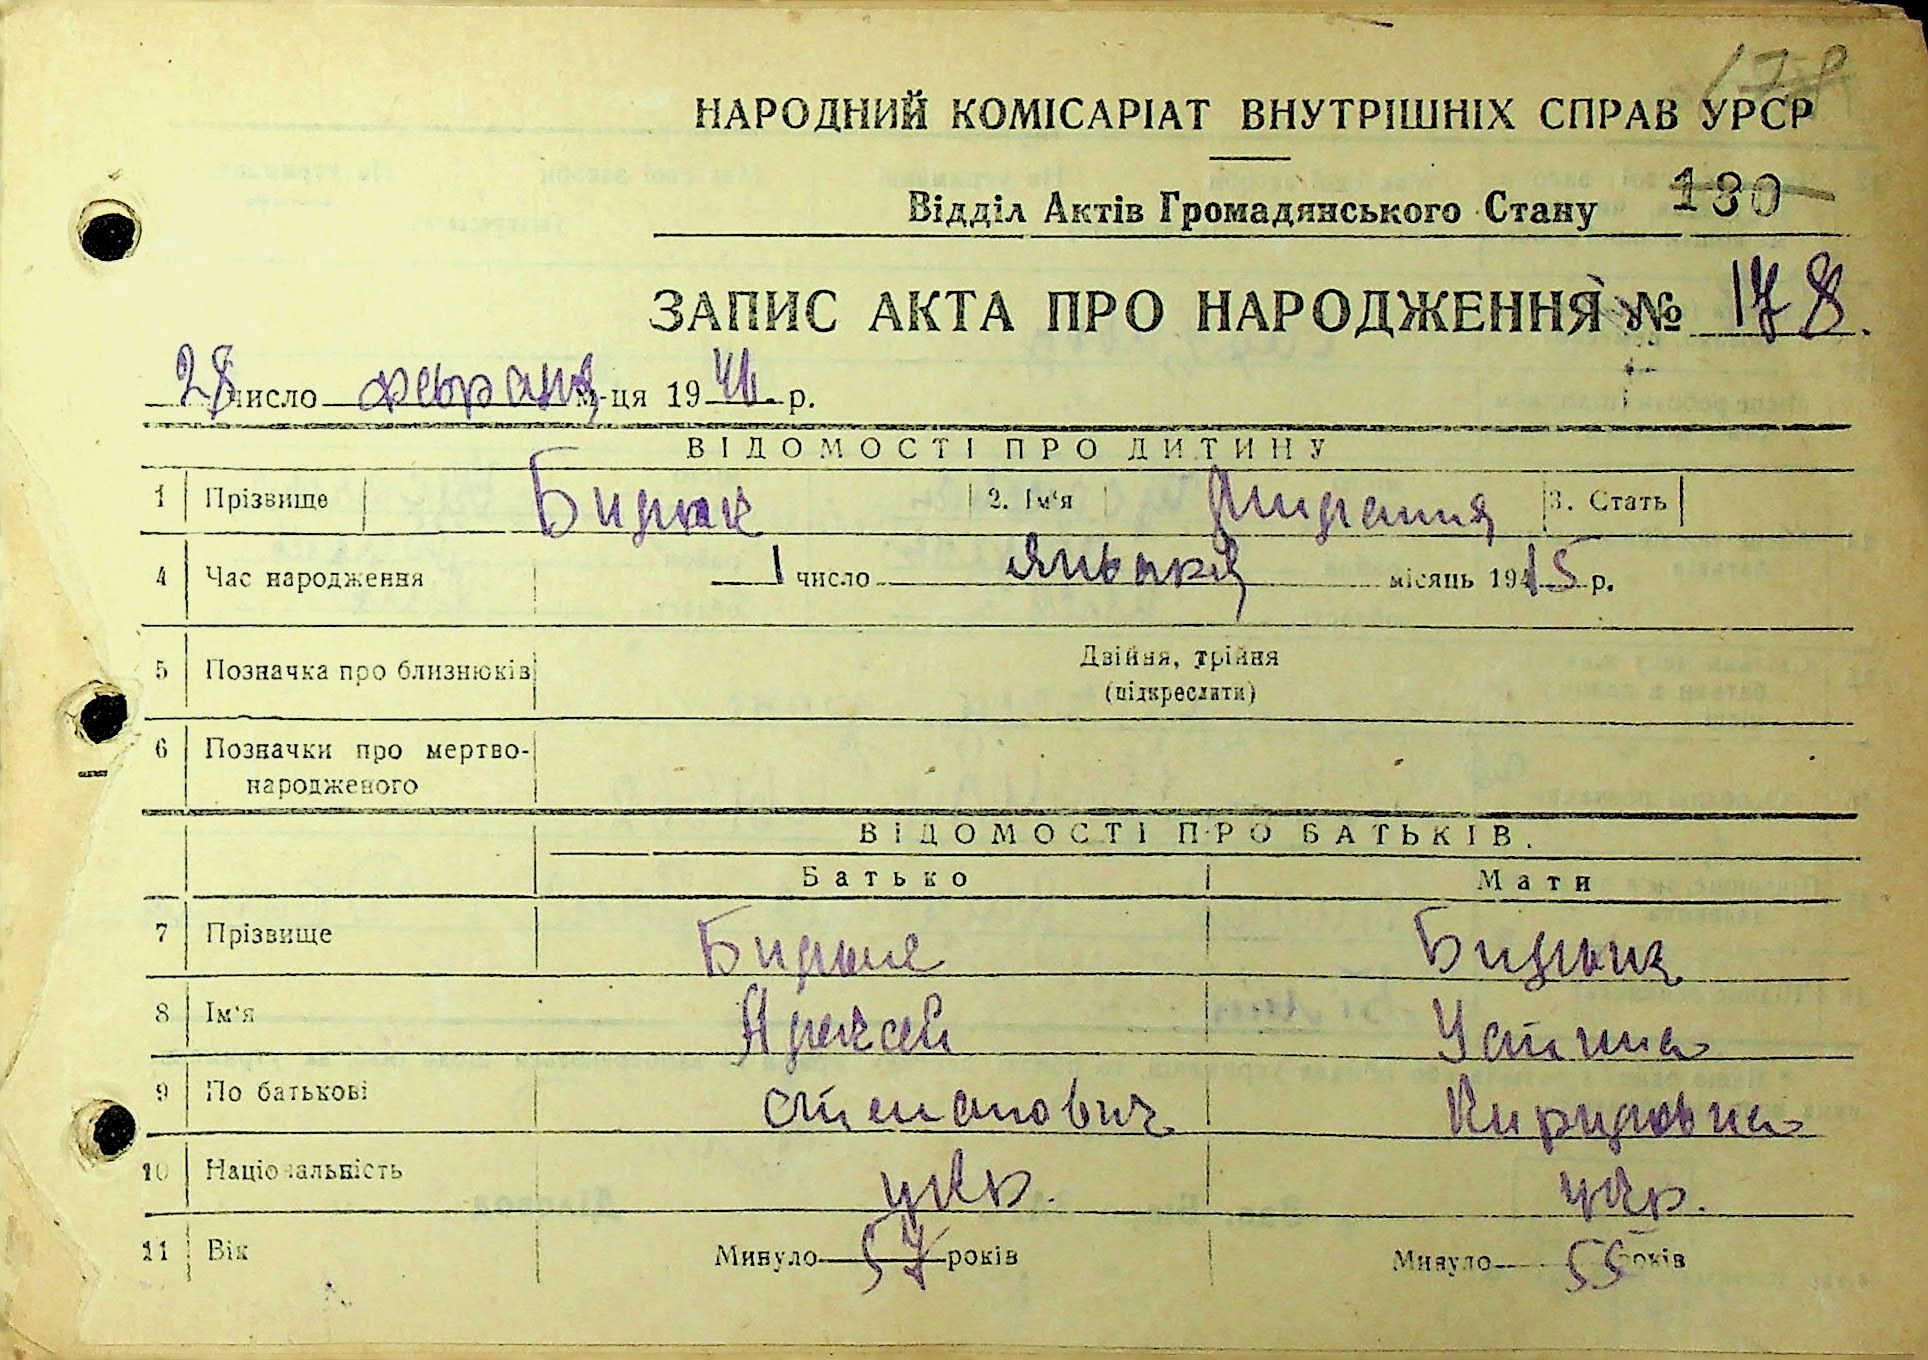 178
НАРОДНИЙ КОМІСАРІАТ ВНУТРІШНІХ СПРАВ УРСР
Відділ Актів Громадянського Стану 130
ЗАПИС АКТА ПРО НАРОДЖЕННЯ № 178.
28 число февраля м-ця 1941 р.
ВІДОМОСТІ ПРО ДИТИНУ
1 Прізвище Бидюк 2. Ім‘я 3. Стать
4 Час народження 1 число января місяць 1915 р.
5 Позначка про близнюків Двійня, трійня
(підкреслити)
6 Позначки про мертво-
народженого
ВІДОМОСТІ ПРО БАТЬКІВ.
Батько Мати
7 Прізвище Бидюк Бидюк
8 Ім‘я Алексей Устина
9 По батькові Степанович Кириловна
10 Національність укр. укр.
11 Вік Минуло 57 років Минуло 55 років